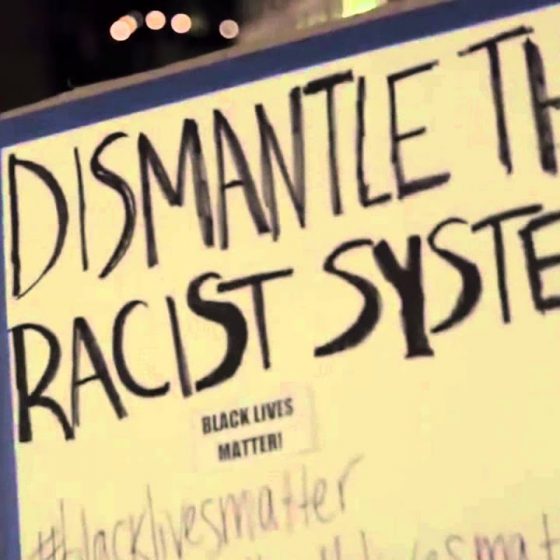 DISMANTLE TH
RACIST SYSTE
BLACK LIVES
MATTER!
#blacklivesmatter